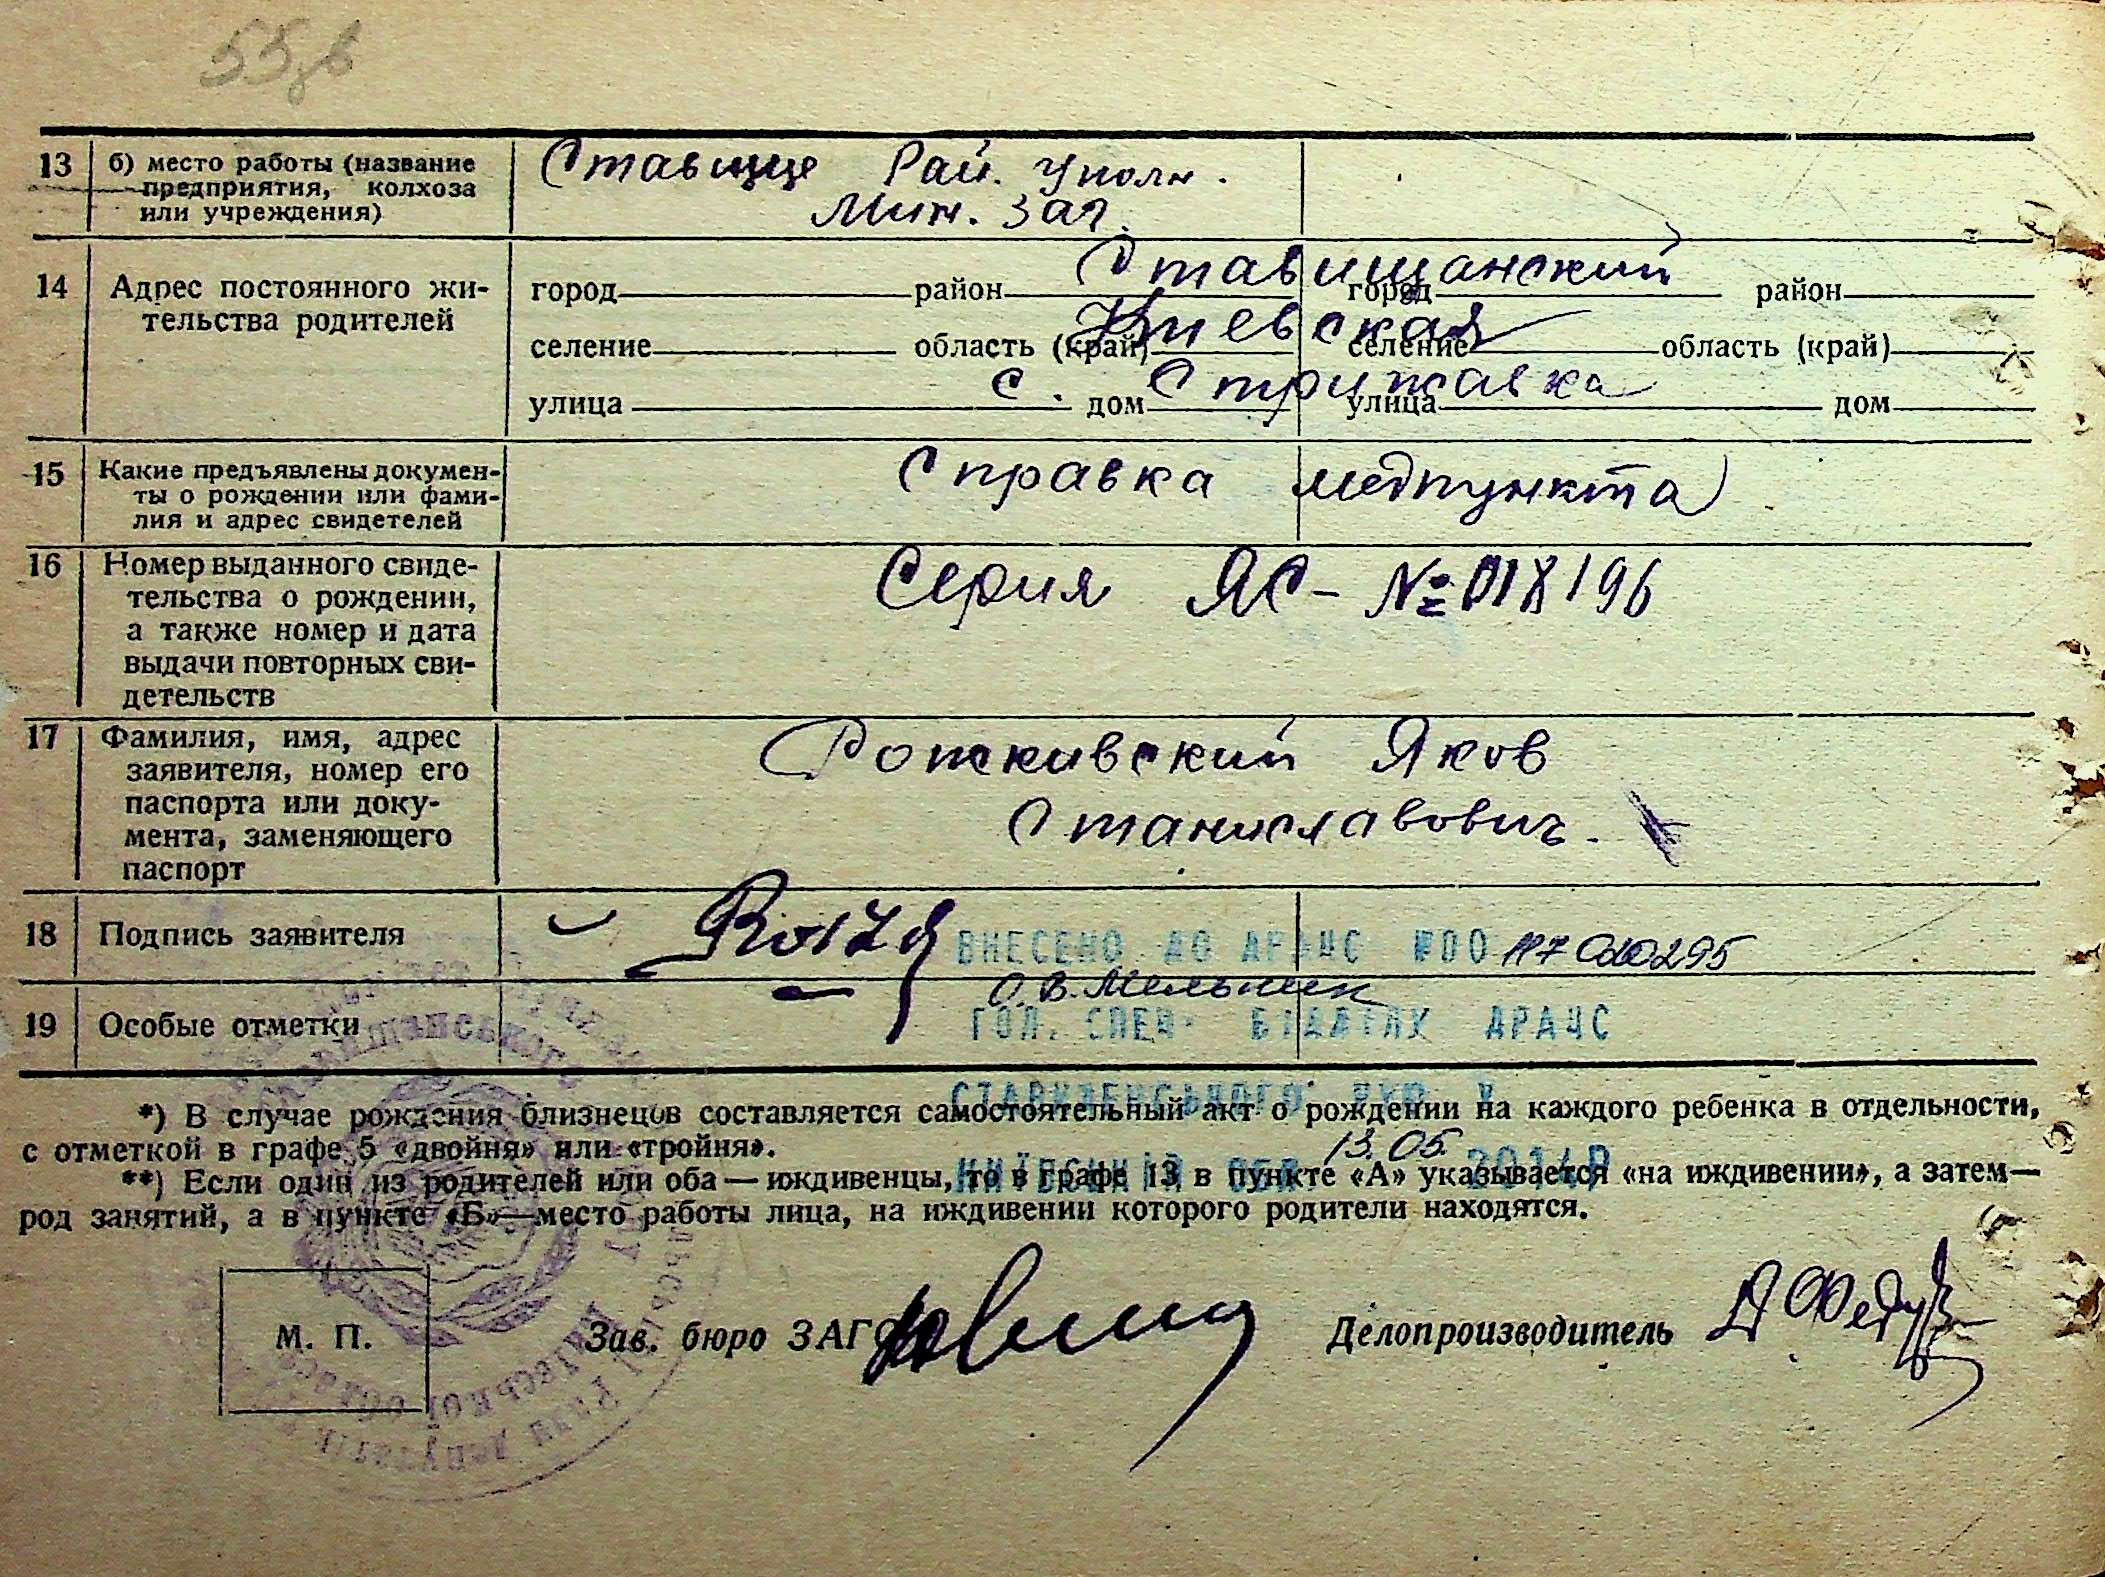 13 б) место работы (название предприятия, колхоза или учреждения)
Ставище Рай. Уполн.
Мин. Заг.
14 Адрес постоянного жительства родителей
город район Ставищанский город район
селение область (край) Киевская селение область (край)
улица дом с. Стрижавка улица дом
15 Какие предъявлены документы о рождении или фамилия и адрес свидетелей
Справка медпункта
16 Номер выданного свидетельства о рождении, а также номер и дата выдачи повторных свидетельств
Серия ЯС - № 018196
17 Фамилия, имя, адрес заявителя, номер его паспорта или документа, заменяющего паспорт
Рожкивский Яков
Станиславович.
18 Подпись заявителя
ВНЕСЕНО ДО ДРАЦС №00
О.В. Мельник
19 Особые отметки
ГОЛ. СПЕЦ. ВІДДІЛУ ДРАЦС
СТАВИЩЕНСЬКОГО РУЮ У
*) В случае рождения близнецов составляется самостоятельный акт о рождении на каждого ребенка в отдельности,
с отметкой в графе 5 «двойня» или «тройня».
13.05.
КИЇВСЬКІЙ ОБЛ. 2014Р
**) Если один из родителей или оба — иждивенцы, то в графе 13 в пункте «А» указывается «на иждивении», а затем—
род занятий, а в пункте «Б»—место работы лица, на иждивении которого родители находятся.
М. П.
Зав. бюро ЗАГС
Делопроизводитель